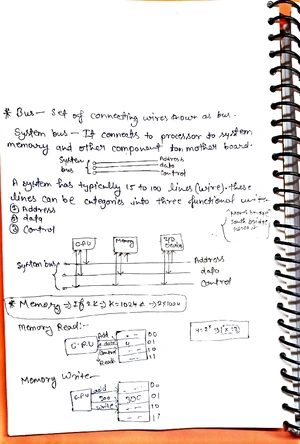 * Bus — Set of connecting wires known as bus.
System bus — It connects to processor to system
memory and other component on mother board.
System bus
Address
data
Control
A system has typically 15 to 100 lines (wire). these
lines can be categories into three functional
① Address
② data
③ Control
C.P.U
Memory
I/O
System bus
Address
data
Control
* Memory → If 2K → K=1024
Memory Read:-
Add
00
C.P.U
data
4
01
Control
10
Read
11
Memory Write—
00
C.P.U
add
500
500
01
write
10
11